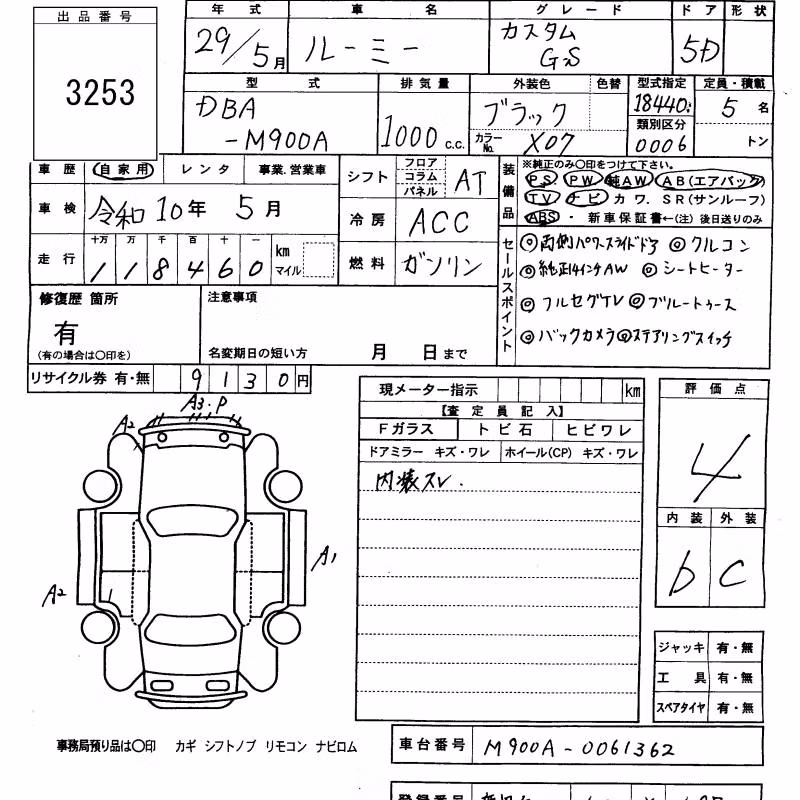 出品番号
3253
年式 車名 グレード ドア 形状
29/5月 ルーミー カスタム G S 5D
型式 排気量 外装色 色替 型式指定 定員・積載
DBA -M900A 1000 c.c. ブラック 18440 5名
カラーNo. X07 類別区分 0006 トン
車歴 自家用 レンタ 事業.営業車
シフト フロア コラム パネル AT
装備品 ※純正のみ〇印をつけて下さい。
PS PW 純AW AB(エアバック)
TV ナビ カワ. SR(サンルーフ)
ABS ・ 新車保証書←(注)後日送りのみ
車検 令和10年 5月
冷房 ACC
走行 十万 万 千 百 十 一 km マイル
118460
燃料 ガソリン
セールスポイント
◎両側パワースライドドア ◎クルコン
◎純正14インチAW ◎シートヒーター
◎フルセグTV ◎ブルートゥース
◎バックカメラ ◎ステアリングスイッチ
修復歴 箇所
有
(有の場合は〇印を)
注意事項
名変期日の短い方 月 日まで
リサイクル券 有・無 9130円
現メーター指示 km
【査定員記入】
Fガラス トビ石 ヒビワレ
ドアミラー キズ・ワレ ホイール(CP) キズ・ワレ
内装スレ.
評価点
4
内装 外装
b C
A3.P
A2
A1
A2
ジャッキ 有・無
工具 有・無
スペアタイヤ 有・無
事務局預り品は〇印 カギ シフトノブ リモコン ナビロム
車台番号 M900A-0061362